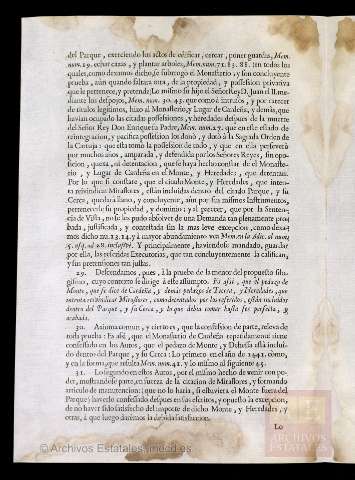 del Parque, exerciendo los actos de edificar, cercar, poner guardas, Mem.
num. 29. echar cazas, y plantar arboles, Mem. num. 71. 83. 88. (en todos los
quales, como dexamos dicho, se subrogò el Monasterio, y son concluyente
prueba, aun quando faltara otra, de la propiedad, y possession privativa
que le pertenece, y pretende) Lo mismo su hijo el Señor Rey D. Juan el II. me-
diante los despojos, Mem. num. 30. 43. que como à intrusos, y por carecer
de titulos legitimos, hizo al Monasterio, y Lugar de Cardeña, y demàs, que
havian ocupado las citadas possessiones, y heredades despues de la muerte
del Señor Rey Don Enrique su Padre, Mem. num. 27. que en este estado de
reintegracion, y pacifica possession los donò, y dotò à la Sagrada Orden de
la Cartuja: que esta tomò la possession de todo, y que en ella persevera
por muchos años, amparada, y defendida por los Señores Reyes, sin opo-
sicion, quexa, ni detentacion, que se haya hecho constar de el Monaste-
rio, y Lugar de Cardeña en el Monte, y Heredades, que detentan.
Por lo que si constare, que el citado Monte, y Heredades, que inten-
ta reivindicar Miraflores, estàn incluidas dentro del citado Parque, y su
Cerca, quedarà llano, y concluyente, aun por sus mismos Instrumentos,
pertenecerle su propiedad, y dominio; y al parecer, que por la Senten-
cia de Vista, no se les pudo absolver de una Demanda tan plenamente pro-
bada, justificada, y contestada sin la mas leve excepcion, como dexa-
mos dicho
por ella, las referidas Executorias, que tan concluyentemente la califican,
y sus pretensiones tan justas.
29. Descendamos, pues, à la prueba de la menor del propuesto sylo-
gismo, cuyo contexto se dirige à este assumpto. Es assi, que el pedazo de
Monte, que se dice de Cardeña, y demàs pedazos de Tierra, y Heredades, que
intenta reivindicar Miraflores, como detentados por los referidos, estàn incluidos
dentro del Parque, y su Cerca, y lo que debia tomar hasta ser perfecta, y
acabada.
30. Axioma comun, y cierto es, que la confession de parte, releva de
toda prueba: Es assi, que el Monasterio de Cardeña repetidamente tiene
confessado en los Autos, que el pedazo de Monte, y Dehessa està inclui-
do dentro del Parque, y su Cerca: Lo primero en el año de 1442. como,
y en la forma, que resulta Mem. num. 42. y lo mismo al siguiente 45.
31. Lo segundo en estos Autos, por el mismo hecho de venir con po-
der, mostrandose parte, en fuerza de la citacion de Miraflores, y formando
articulo de manutencion; (que no la haria, si estuviera el Monte fuera del
Parque) haverlo confessado despues en sus escritos, y opuesto la excepcion,
de no haver sido satisfecho del importe de dicho Monte, y Heredades, y
otras, à que luego darèmos la debida satisfaccion.
Lo
© Archivos Estatales, mecd.es
ARCHIVOS
ESTATALES